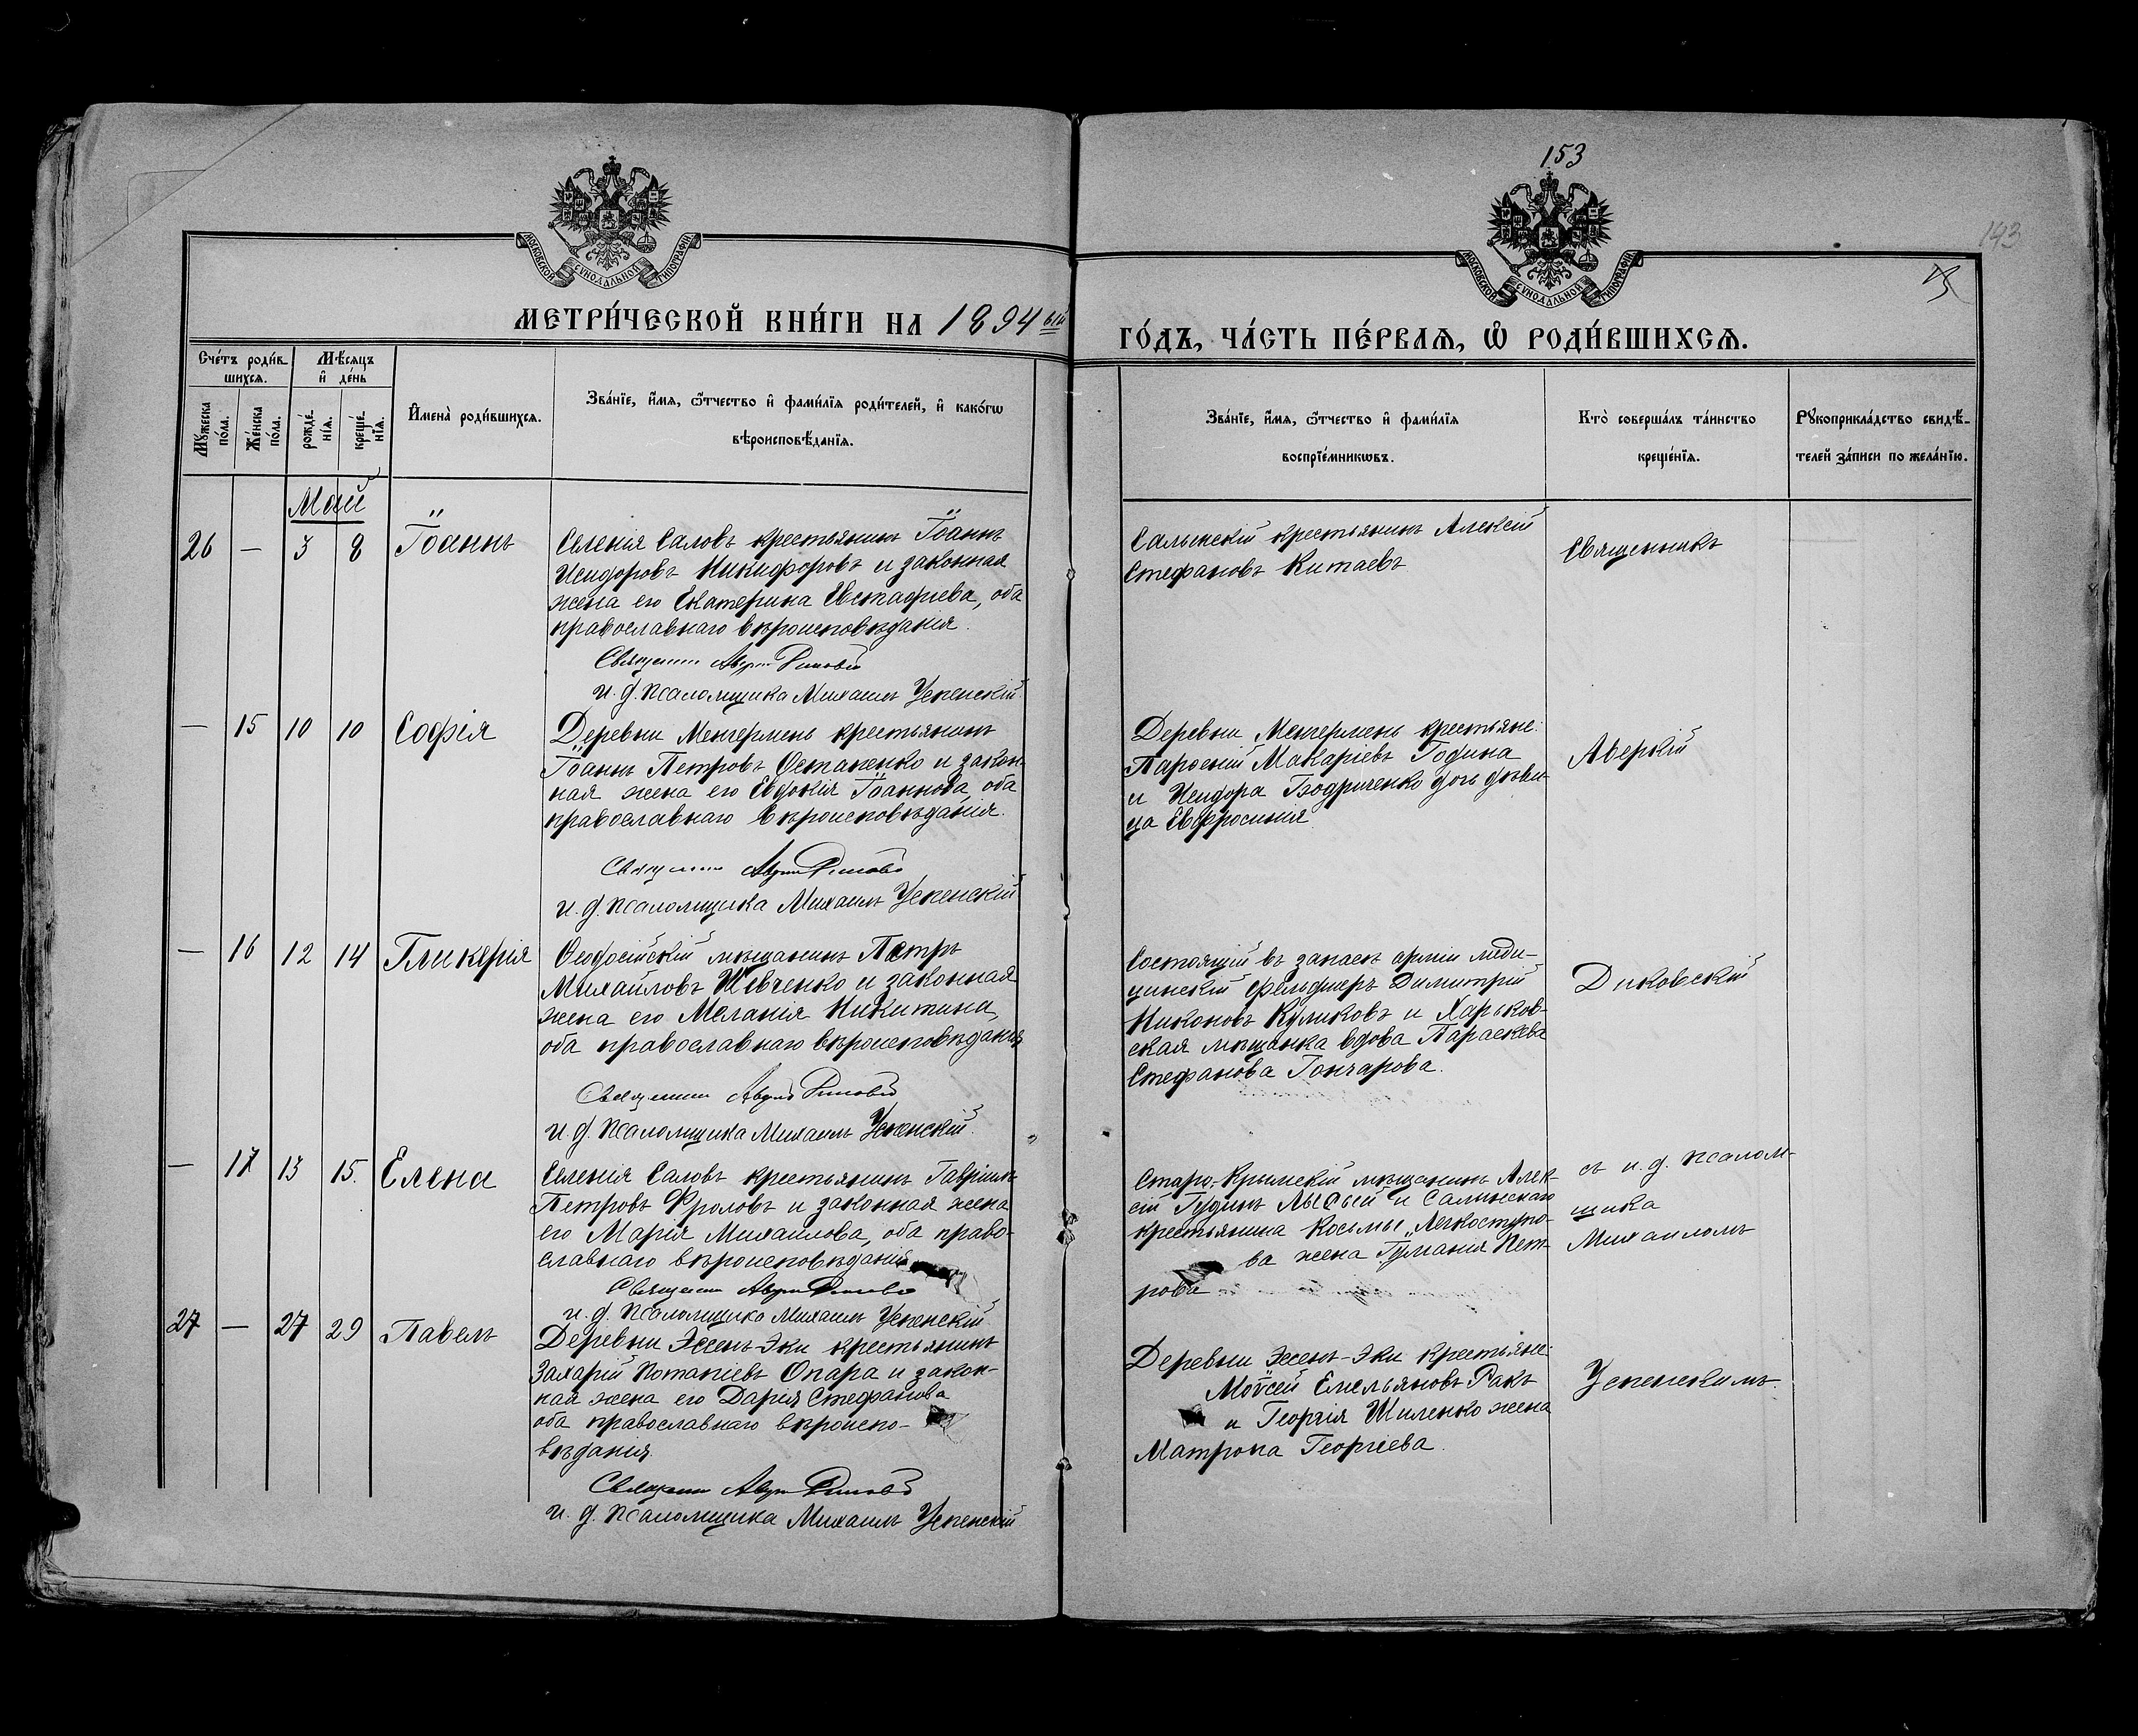 153
143
МОСКОВСКОЙ СѴНОДАЛЬНОЙ ТИПОГРАФІИ
МОСКОВСКОЙ СѴНОДАЛЬНОЙ ТИПОГРАФІИ
МЕТРИ́ЧЕСКОЙ КНИ́ГИ НА 1894 ый
ГО́ДЪ, ЧА́СТЬ ПЕ́РВАѦ, Ѡ҆ РОДИ́ВШИХСѦ.
Сче́тъ роди́в-
шихсѧ.
Мѣ́сѧцъ
и҆ де́нь
Мꙋ́жеска
по́ла.
Же́нска
по́ла.
рожде́-
нїѧ.
креще́-
нїѧ.
И҆мена̀ роди́вшихсѧ.
Зва́нїе, и҆́мѧ, ѻ҆́тчество и҆ фами́лїѧ роди́телей, и҆ како́гѡ
вѣроисповѣ́данїѧ.
Зва́нїе, и҆́мѧ, ѻ҆́тчество и҆ фами́лїѧ
воспрїе́мникѡвъ.
Кто̀ соверша́лъ та́инство
креще́нїѧ.
Рꙋкоприкла́дство свидѣ́-
телей за́писи по жела́нїю.
Май
26 — 3 8 Іоаннъ
Селенія Саловъ крестьянинъ Іоаннъ
Исидоровъ Никифоровъ и законная
жена его Екатерина Евстафіева, оба
православнаго вѣроисповѣданія.
Священникъ
и. д. псаломщика Михаилъ Успенскій.
Салынскій крестьянинъ Алексій
Стефановъ Китаевъ
Священникъ
— 15 10 10 Софія
Деревни Менгермень крестьянинъ
Іоаннъ Петровъ Остапенко и закон
ная жена его Евдокія Іоаннова, оба
православнаго вѣроисповѣданія.
Священникъ
и. д. псаломщика Михаилъ Успенскій
Деревни Менгермень крестьяне:
Макаріевъ Година
и Исидора дочь дѣви-
ца Евфросинія.
Аверкій
— 16 12 14 Гликерія
Ѳеодосійскій мѣщанинъ Петръ
Михайловъ Шевченко и законная
жена его Меланія Никитина,
оба православнаго вѣроисповѣданія
Священникъ
и. д. псаломщика Михаилъ Успенскій.
Состоящій въ запасѣ арміи меди-
цинскій фельдшеръ Димитрій
Никоновъ Куликовъ и Харьков-
ская мѣщанка вдова Параскева
Стефанова Гончарова.
Диковскій
— 17 13 15. Елена
Селенія Саловъ крестьянинъ Гавріилъ
Петровъ Фроловъ и законная жена
его Марія Михаилова, оба право-
славнаго вѣроисповѣданія
Священникъ
и. д. псаломщика Михаилъ Успенскій
Старо-Крымскій мѣщанинъ Алек-
сій Лысый и Салынскаго
крестьянина Косьмы Легкоступо-
ва жена Іуліанія Пет-
рова
съ и. д. псалом-
щика
Михаиломъ
27 — 27 29 Павелъ
Деревни Эссенъ-Эки крестьянинъ
Захарій Потапіевъ Опара и закон-
ная жена его Дарія Стефанова
оба православнаго вѣроиспо-
вѣданія.
Священникъ
и. д. псаломщика Михаилъ Успенскій
Деревни Эссенъ-Эки крестьяне:
Мойсей Емельяновъ Ракъ
и Георгія Шиленко жена
Матрона Георгіева.
Успенскимъ.